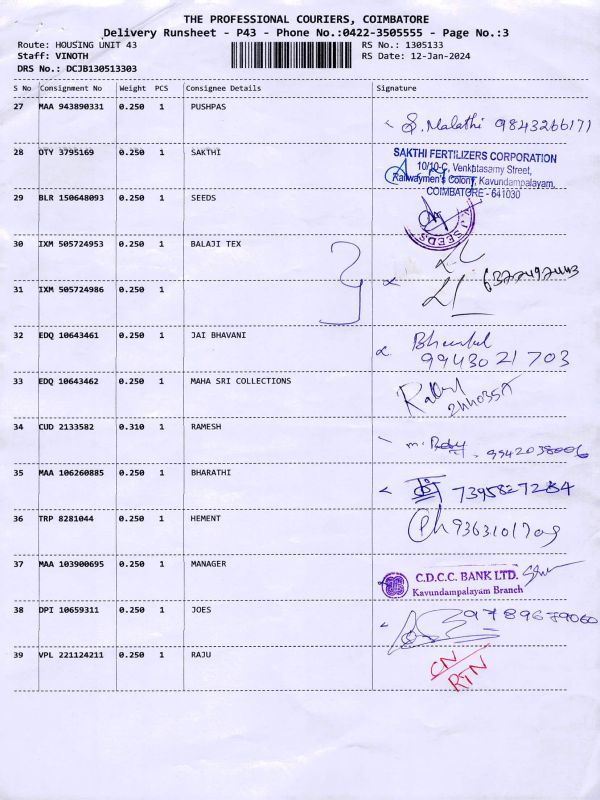 THE PROFESSIONAL COURIERS, COIMBATORE
Delivery Runsheet - P43 - Phone No.:0422-3505555 - Page No.:3
Route: HOUSING UNIT 43 RS No.: 1305133
Staff: VINOTH RS Date: 12-Jan-2024
DRS No.: DCJB130513303
S No Consignment No Weight PCS Consignee Details Signature
27 MAA 943890331 0.250 1 PUSHPAS
S. Malathi 9843266171
28 DTY 3795169 0.250 1 SAKTHI
SAKTHI FERTILIZERS CORPORATION
10/10-C, Venkatasamy Street,
Railwaymen's Colony, Kavundampalayam,
COIMBATORE - 641030
29 BLR 150648093 0.250 1 SEEDS
SEEDS
30 IXM 505724953 0.250 1 BALAJI TEX
31 IXM 505724986 0.250 1
32 EDQ 10643461 0.250 1 JAI BHAVANI
9943021703
33 EDQ 10643462 0.250 1 MAHA SRI COLLECTIONS
34 CUD 2133582 0.310 1 RAMESH
9942038006
35 MAA 106260885 0.250 1 BHARATHI
7395827284
36 TRP 8281044 0.250 1 HEMENT
37 MAA 103900695 0.250 1 MANAGER
C.D.C.C. BANK LTD.
Kavundampalayam Branch
38 DPI 10659311 0.250 1 JOES
9789679060
39 VPL 221124211 0.250 1 RAJU
CN
RTN